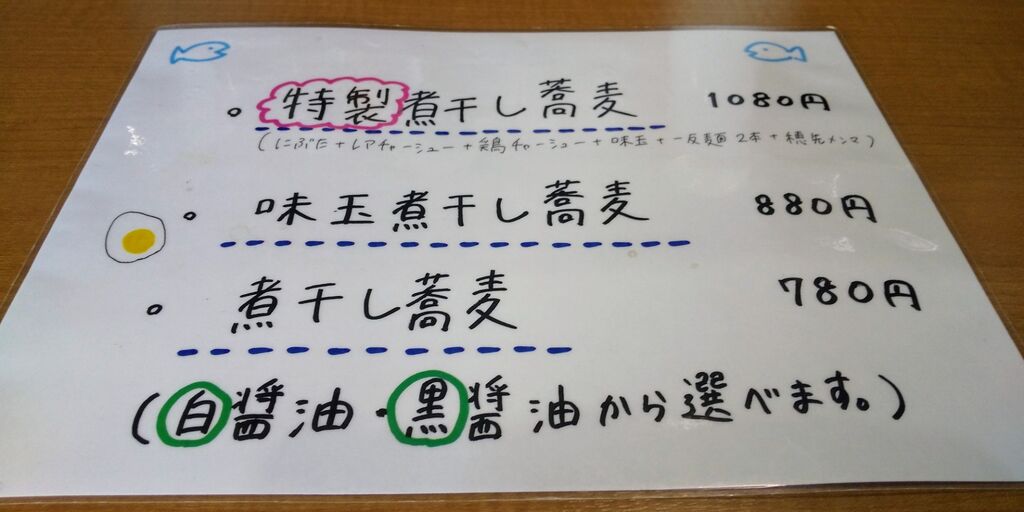 。特製煮干し蕎麦 1080円
(にぶた+レアチャーシュー+鶏チャーシュー+味玉+一反麺2本+穂先メンマ)
。味玉煮干し蕎麦 880円
。煮干し蕎麦 780円
(白醤油・黒醤油から選べます。)